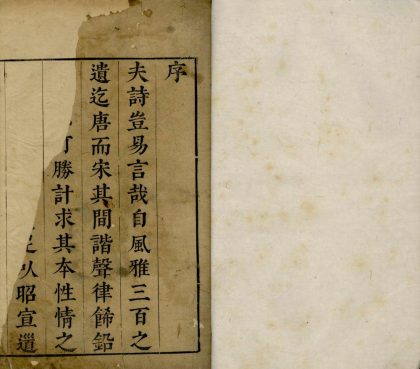 序
夫詩豈易言哉自風雅三百之
遺迄唐而宋其間諧聲律餙鉛
可勝計求其本性情之
以昭宣